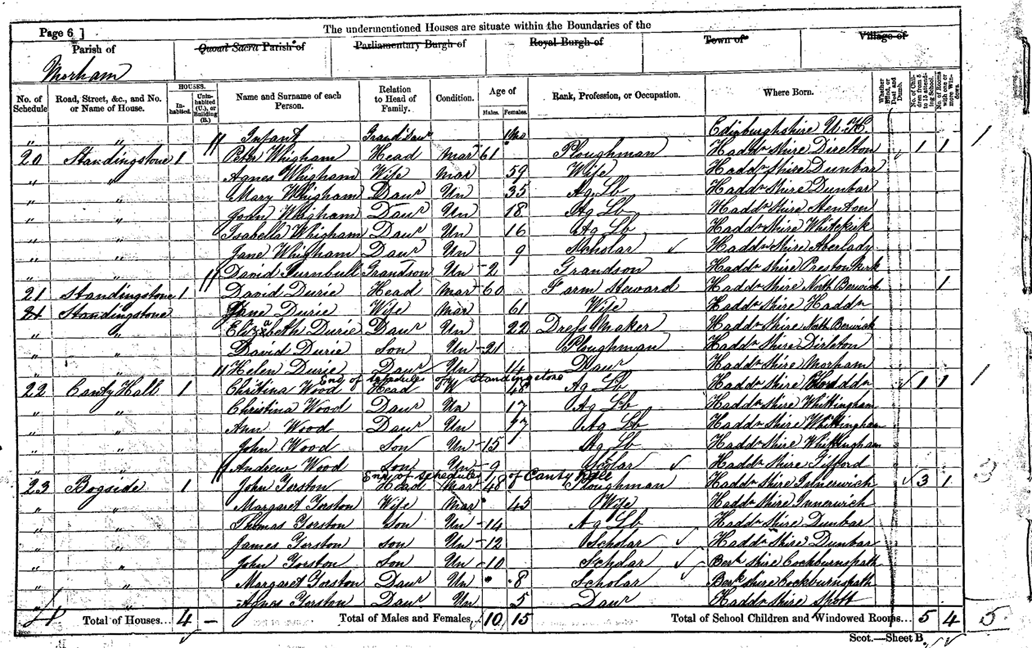 Page 6 ]
The undermentioned Houses are situate within the Boundaries of the
Parish of Quoad Sacra Parish of Parliamentary Burgh of Royal Burgh of Town of Village of
Morham
No. of Schedule Road, Street, &c., and No. or Name of House. HOUSES. Inhabited. Uninhabited (U.), or Building (B.) Name and Surname of each Person. Relation to Head of Family. Condition. Age of Males. Females. Rank, Profession, or Occupation. Where Born. Whether Blind, or Deaf and Dumb. No. of Children from 5 to 15 attending School. No. of Rooms with one or more Windows.
" " // Infant Grand Daur Edinburghshire 1
20 Standingstone 1 Peter Whigham Head Mar 61 Ploughman Haddn Shire Direlton 1 1
" " Agnes Whigham Wife Mar 59 Wife Haddn Shire Dunbar
" " Mary Whigham Daur Un 35 Ag Lb Haddn Shire Dunbar
" " Joan Whigham Daur Un 18 Ag Lb Haddn Shire Stenton
" " Isabella Whigham Daur Un 16 Ag Lb Haddn Shire Whitekirk
" " Jane Whigham Daur Un 9 Scholar ✓ Haddn Shire Aberlady
" " // David Turnbull Grandson Un 2 Grandson Haddn Shire Preston Kirk
21 Standingstone 1 David Durie Head Mar 60 Farm Steward Haddn Shire North Berwick 1
21 Standingstone Jane Durie Wife Mar 61 Wife Haddn Shire Haddn
" " Elizabeth Durie Daur Un 22 Dress Maker Haddn Shire North Berwick
" " David Durie Son Un 21 Ploughman Haddn Shire Dirleton
" " // Helen Durie Daur Un 14 Daur Haddn Shire Morham
End of Schedule of Standingstone
22 Canty Hall 1 Christina Wood Head W 48 Ag Lb Haddn Shire Haddn ✓ 1 1 1
" " Christina Wood Daur Un 17 Ag Lb Haddn Shire Whittingham
" " Ann Wood Daur Un 17 Ag Lb Haddn Shire Whittingham
" " John Wood Son Un 15 Ag Lb Haddn Shire Whittingham
" " // Andrew Wood Son Un 9 Scolar ✓ Haddn Shire Gifford
End of Schedule of Canty Hall
23 Bogside 1 John Gorston Head Mar 48 Ploughman Haddn Shire Innerwick ✓ 3 1 3
" " Margaret Gorston Wife Mar 45 Wife Haddn Shire Innerwick
" " Thomas Gorston Son Un 14 Ag Lb Haddn Shire Dunbar
" " James Gorston Son Un 12 Scholar ✓ Haddn Shire Dunbar
" " John Gorston Son Un 10 Scholar ✓ Berk Shire Cockburnspath
" " Margaret Gorston Daur Un 8 Scholar ✓ Berk Shire Cockburnspath
" " Agnes Gorston Daur Un 5 Daur Haddn Shire Spott
4 Total of Houses... 4 – Total of Males and Females... 10 15 Total of School Children and Windowed Rooms... 5 4 5
Scot.—Sheet B.